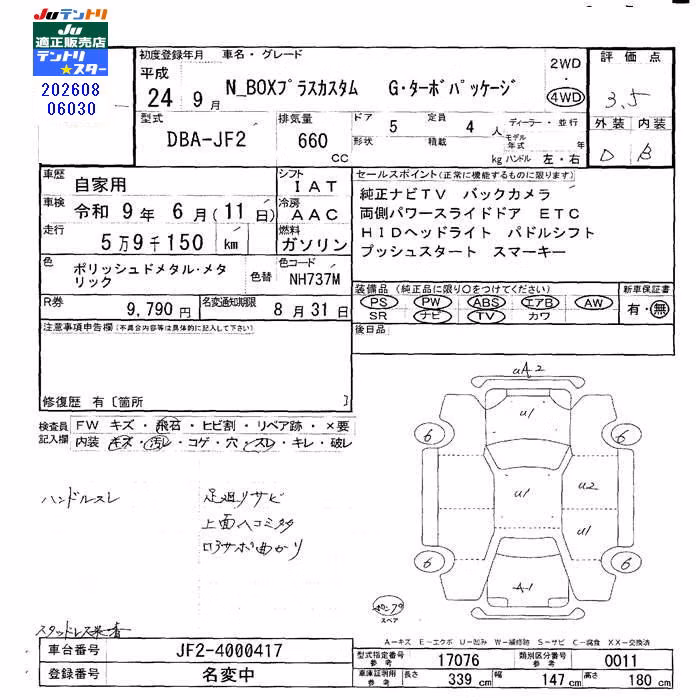 JUテントリ
JU
適正販売店
テントリ
★スター
202608
06030
初度登録年月 車名・グレード
平成
24 9月 N_BOXプラスカスタム G・ターボパッケージ
2WD
・
4WD
評価点
3.5
外装 内装
D B
型式
DBA-JF2
排気量
660
CC
ドア 5 定員 4 人
形状 積載 kg
ディーラー・並行
モデル年式 年
ハンドル 左・右
車歴 自家用
シフト IAT
車検 令和 9年 6月(11日)
冷房 AAC
走行 5万9千150 km
燃料 ガソリン
色 ポリッシュドメタル・メタリック
色替
色コード
NH737M
R券 9,790円
名変通知期限 8月31日
セールスポイント(正常に機能するものに限ります)
純正ナビTV バックカメラ
両側パワースライドドア ETC
HIDヘッドライト パドルシフト
プッシュスタート スマーキー
装備品 (純正品に限り○をつけてください)
PS PW ABS エアB AW
SR ナビ TV カワ
新車保証書
有・無
後日品
注意事項申告欄(不具合内容等は具体的に記入して下さい)
修復歴 有[箇所 ]
検査員
記入欄
FW キズ・飛石・ヒビ割・リペア跡・×要
内装 キズ・汚レ・コゲ・穴・スレ・キレ・破レ
ハンドルスレ
足廻リサビ
上面ヘコミ多
ロアサポ曲がり
スタッドレス装着
UA2
U1
6
6
U1
U2
U1
6
6
A-1
ポンプ
スペア
A-キズ E-エクボ U-凹み W-補修跡 S-サビ C-腐食 XX-交換済
車台番号 JF2-4000417
登録番号 名変中
型式指定番号
参考
17076
類別区分番号
参考
0011
車庫証明用
参考
長さ 339 cm 幅 147 cm 高さ 180 cm